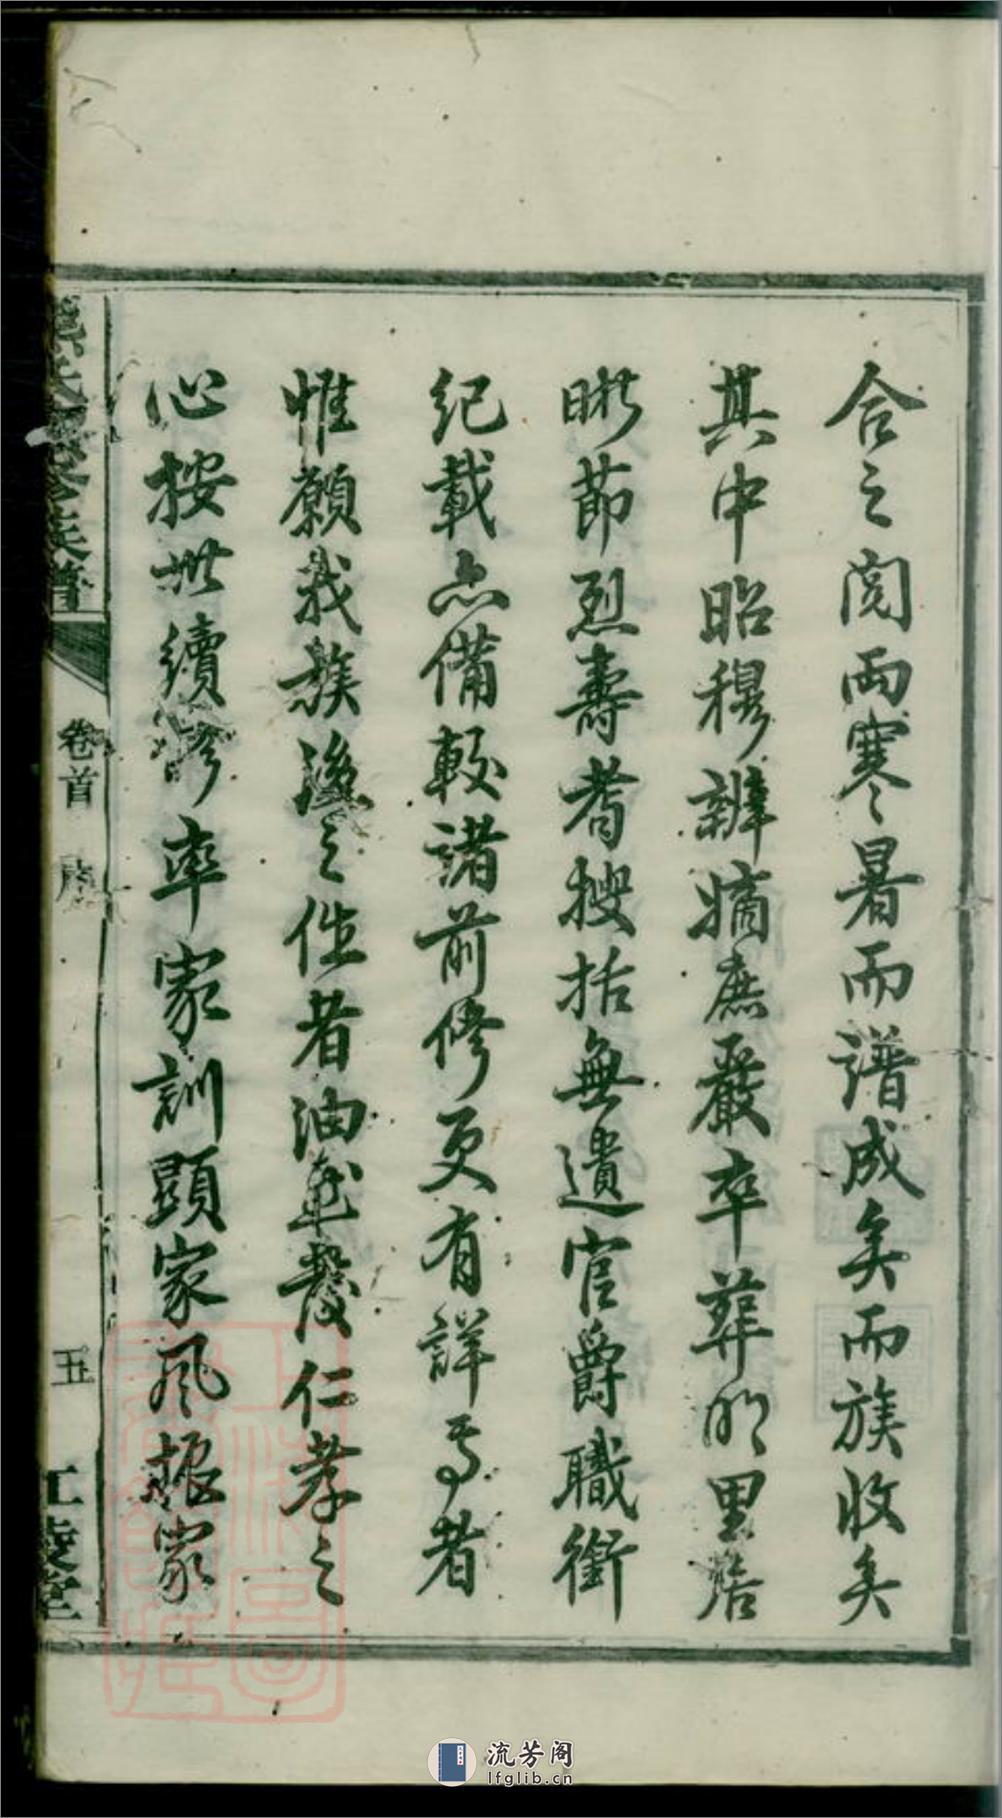 合之閲兩寒暑而譜成矣而族收矣
其中昭穆辨嫡庶嚴卒葬明里居
晰節烈壽耉搜括無遺官爵職銜
紀載亦備較諸前修更有詳焉者
惟願我族後之作者油然發仁孝之
心按世續修率家訓顯家風振家
氏 修族譜
卷首
序
五
江陵堂
流芳阁
lfglib.cn